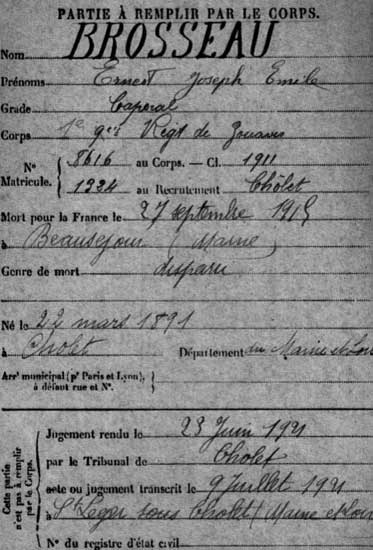 PARTIE À REMPLIR PAR LE CORPS.
Nom BROSSEAU
Prénoms Ernest Joseph Emile
Grade Caporal
Corps Régt de Zouaves
N° Matricule. 8616 au Corps. — Cl. 1911
1224 au Recrutement Cholet
Mort pour la France le 27 septembre 1915
à Beauséjour (Marne)
Genre de mort disparu
Né le 22 mars 1891
à Cholet Département du Maine et Loire
Arrt municipal (pr Paris et Lyon), à défaut rue et N°.
Cette partie n'est pas à remplir par le Corps.
Jugement rendu le 23 Juin 1921
par le Tribunal de Cholet
acte ou jugement transcrit le 9 Juillet 1921
à St Léger sous Cholet (Maine et Loire
N° du registre d'état civil